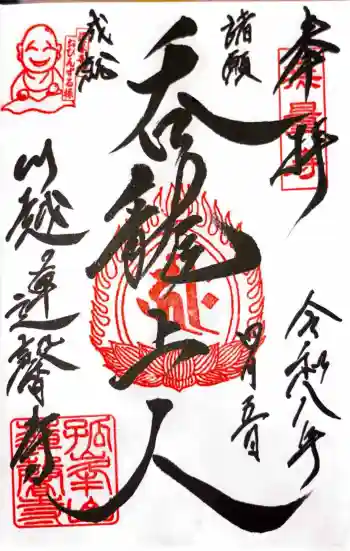 奉拝
諸願
成就
呑龍上人
川越蓮馨寺
令和八年
四月五日
おびんずる様